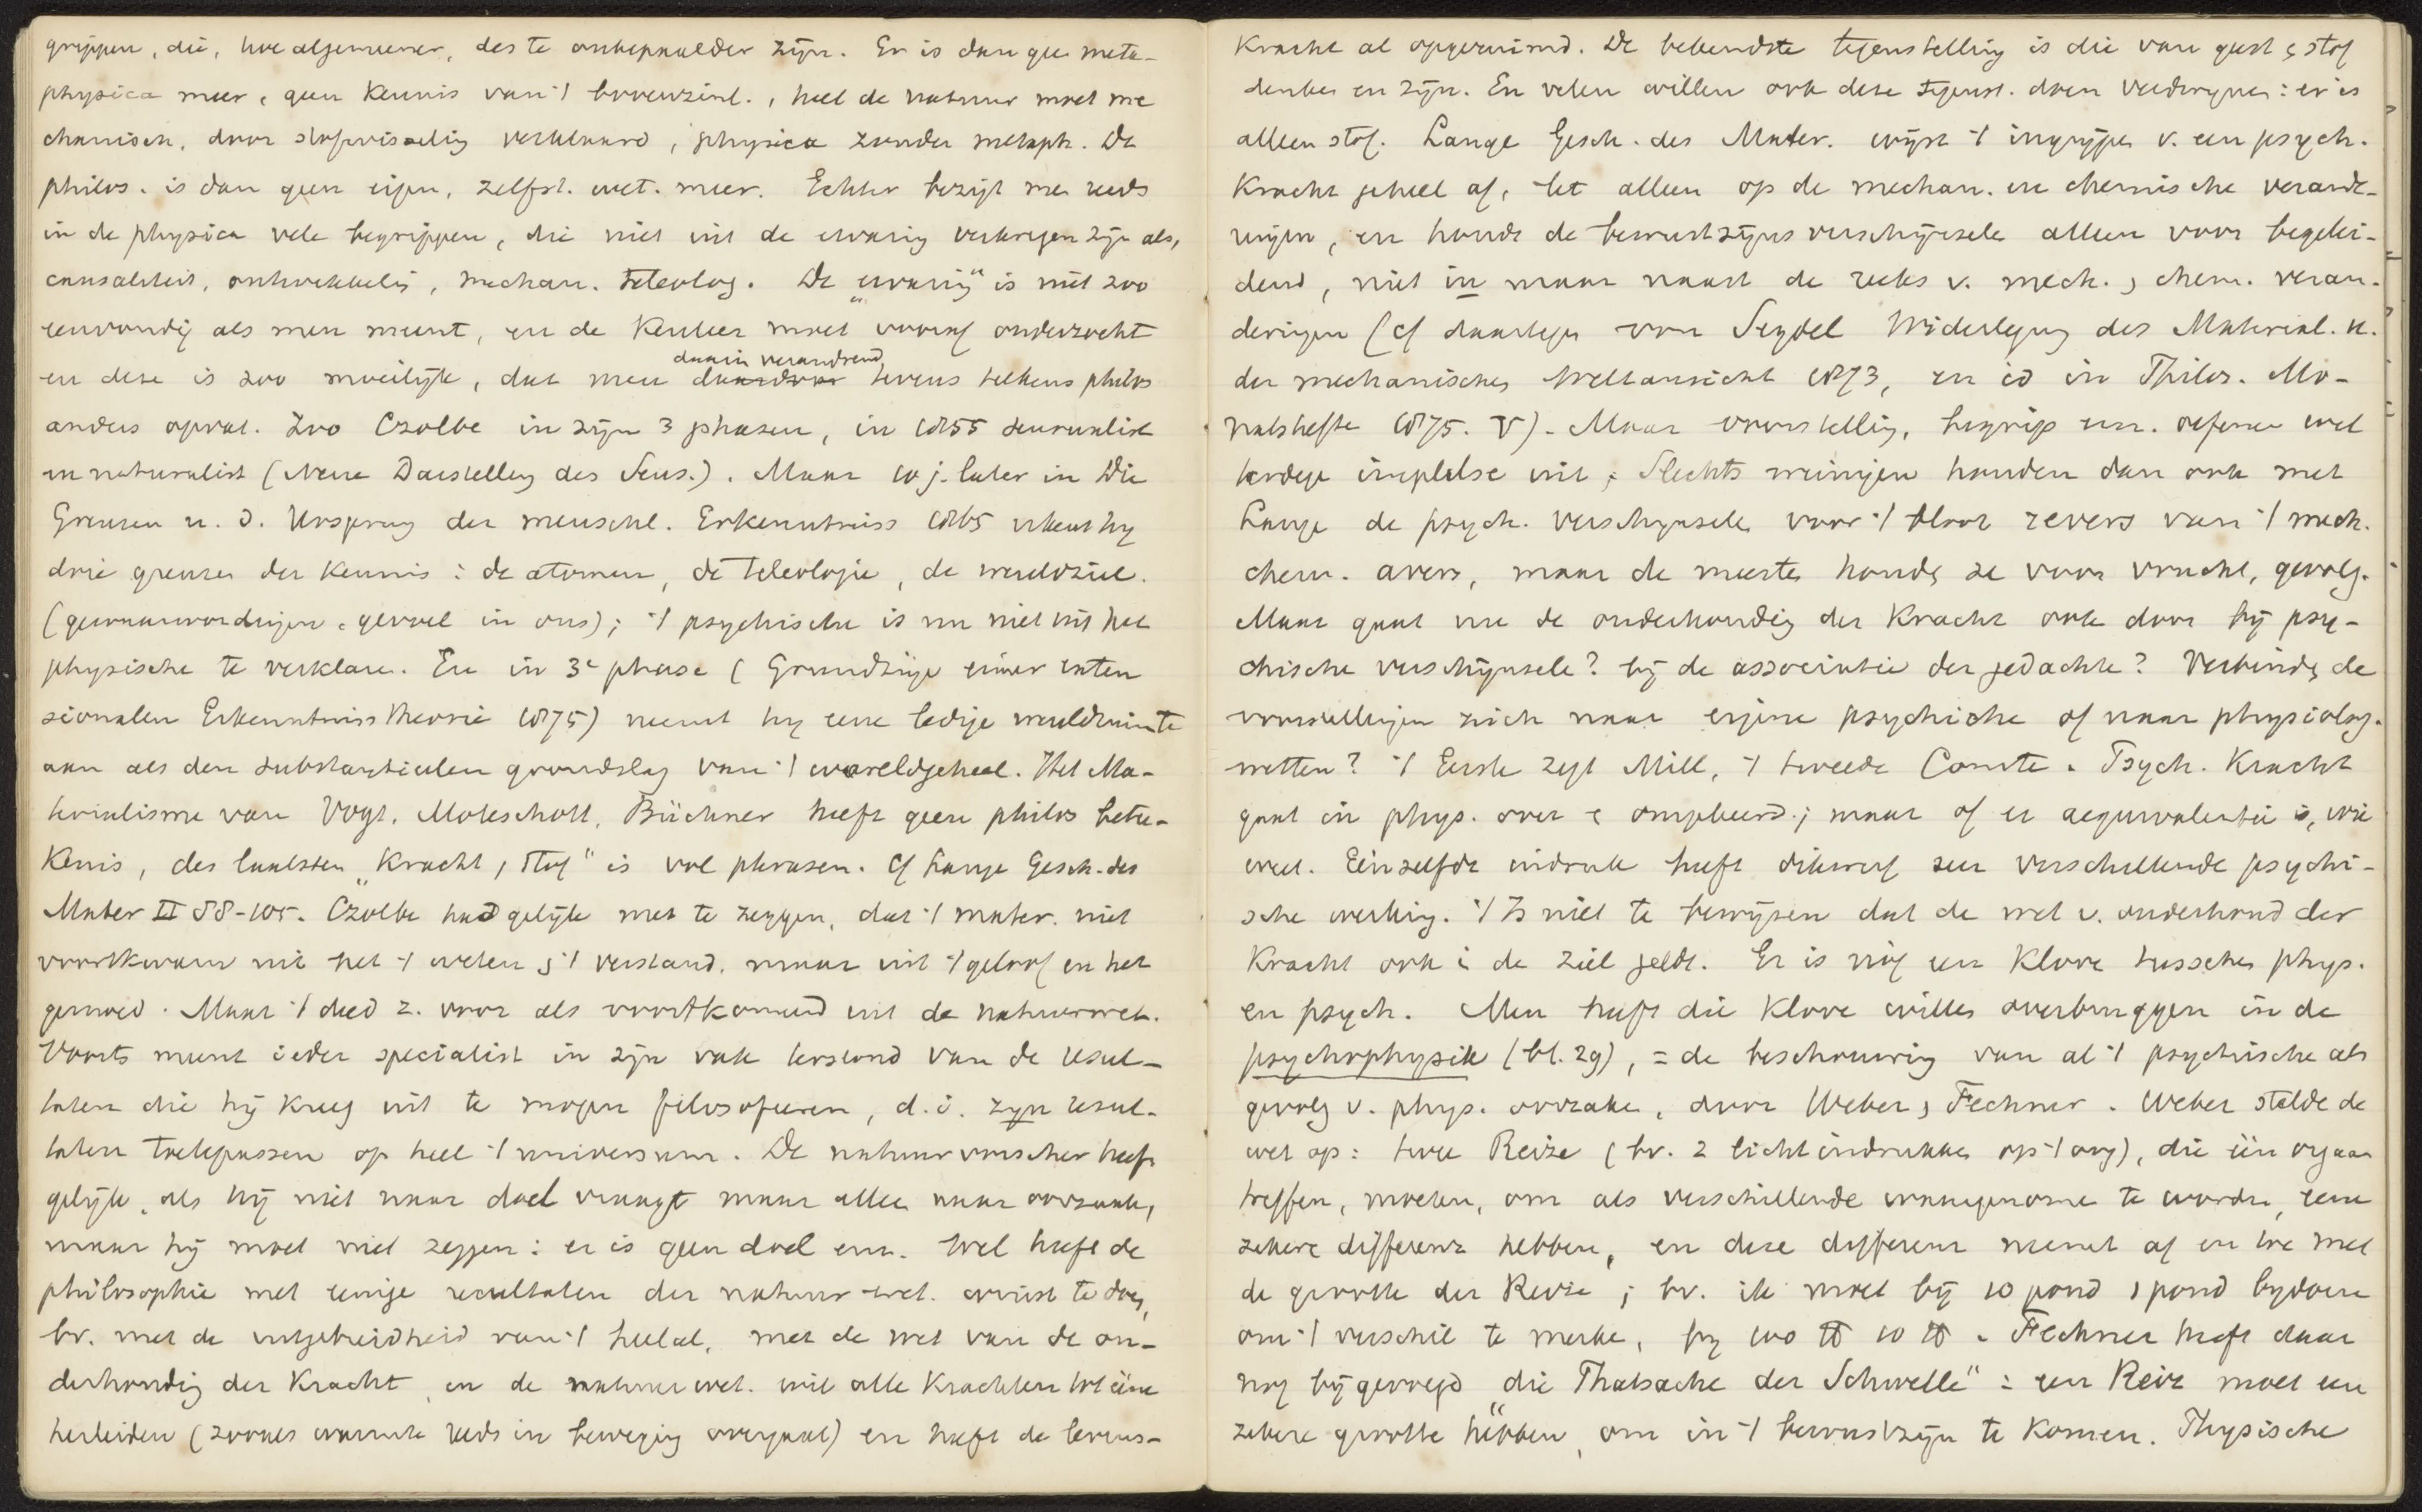 grippen, die, hoe algemeener, des te onbepaalder zijn. Er is dan gee meta-
physica meer, geen kennis van 't bovenzinl., heel de natuur moet me
chanisch, door stofwisseling verklaard, physica zonder metaph. De
philos. is dan geen eigen, zelfst. wet. meer. Echter bezigt me reeds
in de physica vele begrippen, die niet uit de ervaring verkregen zijn als,
causaliteit, ontwikkelig, mechan. teleolog. De „ervaring" is niet zoo
eenvoudig als men meent, en de Kenleer moet vooraf onderzocht
en deze is zoo moeilijk, dat men daarin verandrend tevens telkens philos
anders opvat. Zoo Czolbe in zijn 3 phasen, in 1855 sensualist
en naturalist (Neue Darstellung des Sens.). Maar 10 j. later in Die
Grenzen u. d. Ursprung der menschl. Erkenntniss 1865 erkent hy
drie grenzen der kennis: de atomen, de teleologie, de wereldziel.
(gewaarwordingen & gevoel in ons); 't psychische is nu niet uit het
physische te verklare. En in 3e phase (Grundzüge einer exten
sionalen Erkenntniss theorie 1875) neemt hy eene ledige wereldruimte
aan als den substantieelen grondslag van 't wereldgeheel. Het Ma-
terialisme van Vogt, Moleschott, Büchner heeft geen philos betee-
kenis, des laatsten „Kracht & Stof" is vol phrasen. Cf Lange Gesch. des
Mater II 88-105. Czolbe had gelijk met te zeggen, dat 't mater. niet
voortkwam uit het 't weten & 't verstand, maar uit 't geloof en het
gemoed. Maar 't deed z. voor als voortkomend uit de natuurwet.
Voorts meent ieder specialist in zijn vak terstond van de resul-
taten die hij kreeg uit te mogen filosofeeren, d.i. zijn resul-
taten toetepassen op heel 't universum. De natuurvorscher heeft
gelijk, als hij niet naar doel vraagt maar allee naar oorzaak,
maar hij moet niet zeggen: er is geen doel enz. Wel heeft de
philosophie met eenige resultaten der natuur-wet. winst te doen,
bv. met de uitgebreidheid van 't heelal, met de wet van de on-
derhoudig der Kracht, en de natuurwet. wil alle Krachten tot ééne
herleiden (zooals warmte reeds in beweging overgaat) en heeft de levens-
Kracht al opgeruimd. De bekendste tegenstelling is die van geest & stof
denken en zijn. En velen willen ook deze tegenst. doen verdwijnen: er is
alleen stof. Lange Gesch. des Mater. wijst 't ingrijpe v. een psych.
Kracht geheel af, let alleen op de mechan. en chemische verande-
ringen, en houdt de bewustzijnsverschijnsele alleen voor begelei-
dend, niet in maar naast de reeks v. mech. & chem. veran-
deringen (cf daartege von Seydel Widerlegung des Material. u.
der mechanischen Weltansicht 1873, en id in Philos. Mo-
natshefte 1875. V). Maar voorstelling, begrip enz. oefenen wel
terdege impulse uit; Slechts weinigen houden dan ook met
Lange de psych. verschijnsele voor 't bloot revers van 't mech.
chem. avers, maar de meeste houdn ze voor vrucht, gevolg.
Maar gaat nu de onderhoudig der Kracht ook door bij psy-
chische verschijnsele? bij de associatie der gedachte? Verbindn de
voorstellingen zich naar eigene psychiche of naar physiolog.
wetten? 't Eerste zegt Mill, 't tweede Comte. Psych. Kracht
gaat in phys. over & omgekeerd; maar of er aequivalentie is, wie
weet. Eénzelfde indruk heeft dikwerf zeer verschillende psychi-
sche werking. 't Is niet te bewijsen dat de wet v. onderhoud der
Kracht ook i de ziel geldt. Er is nóg een Klove tusschen phys.
en psych. Men heeft die Klove willen overbruggen in de
psychophysik (bl. 29), = de beschouwing van al 't psychische als
gevolg v. phys. oorzake, door Weber & Fechner. Weber stelde de
wet op: twee Reize (bv. 2 lichtindrukken op 't oog), die één orgaan
treffen, moeten, om als verschillende waargenome te worden, eene
zekere differenz hebben, en deze differenz neemt af en toe met
de grootte der Reize; bv. ik moet bij 10 pond 1 pond bijdoen
om 't verschil te merke, bij 100 ℔ 10 ℔. Fechner heeft daar
nog bijgevoegd „die Thatsache der Schwelle": een Reiz moet een
zekere grootte hebben, om in 't bewustzijn te Komen. Physische